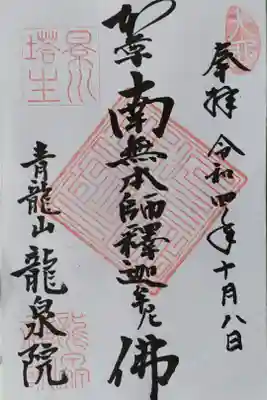 奉拝 令和四年十月八日
南無本師釋迦牟尼佛
青龍山 龍泉院